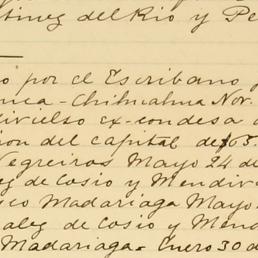 tinez del Rio y Pe
o por el Escribano
nca - Chihuahua Nov.
divulso ex-condesa
ion del capital de
Negreiros Mayo 24 de
ez de Cosio y Mendiv
sco Madariaga Mayo
zalez de Cosio y Mend
Madariaga - Enero 30 d